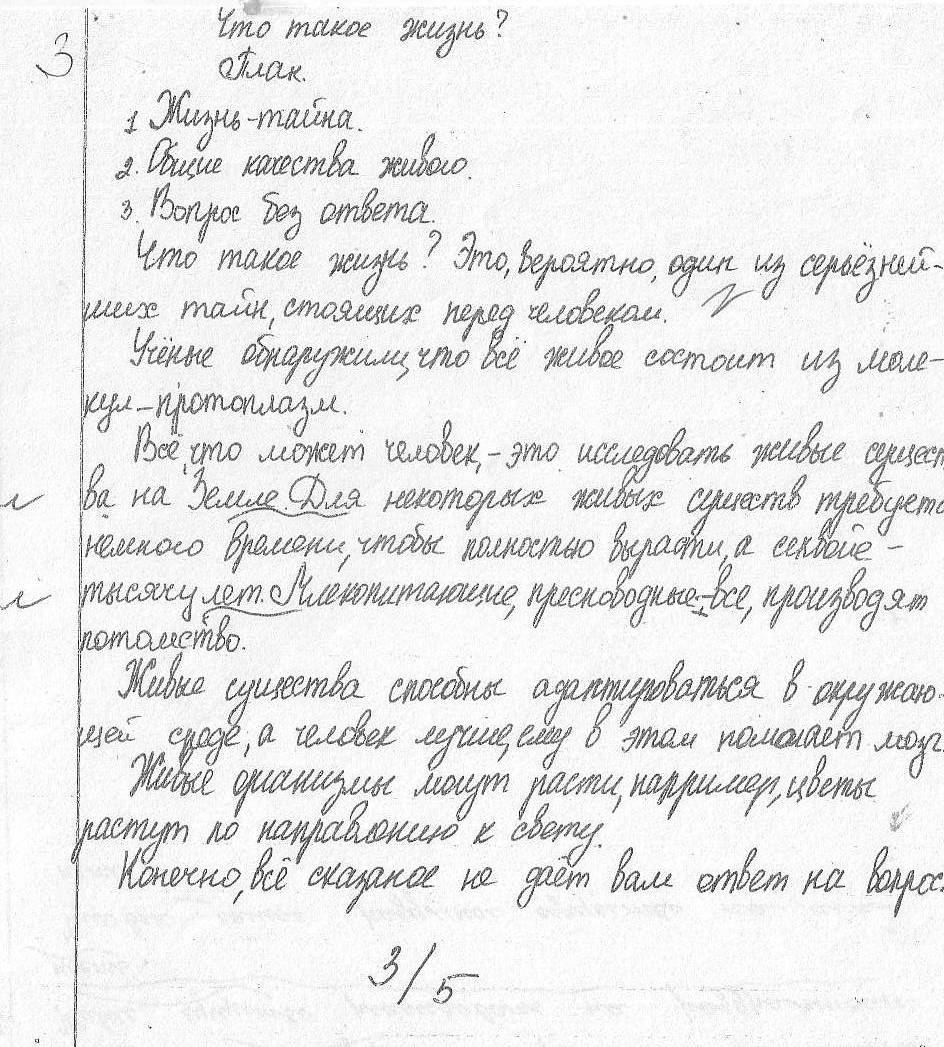 Что такое жизнь?
3
План.
1 Жизнь-тайна.
2. Общие качества живого.
3. Вопрос без ответа.
Что такое жизнь? Это, вероятно, один из серьёзней-
ших тайн, стоящих перед человеком.
Учёные обнаружили, что всё живое состоит из моле-
кул-протоплазм.
Всё, что может человек, - это исследовать живые сущест
ва на Земле. Для некоторых живых существ требуется
немного времени, чтобы полностью вырасти, а секвойе -
тысячу лет. Млекопитающие, пресноводные - все, производят
потомство.
Живые существа способны адаптироваться в окружаю-
щей среде, а человек лучше, ему в этом помогает мозг.
Живые организмы могут расти, например, цветы
растут по направлению к свету.
Конечно, всё сказаное не даёт вам ответ на вопрос.
3/5